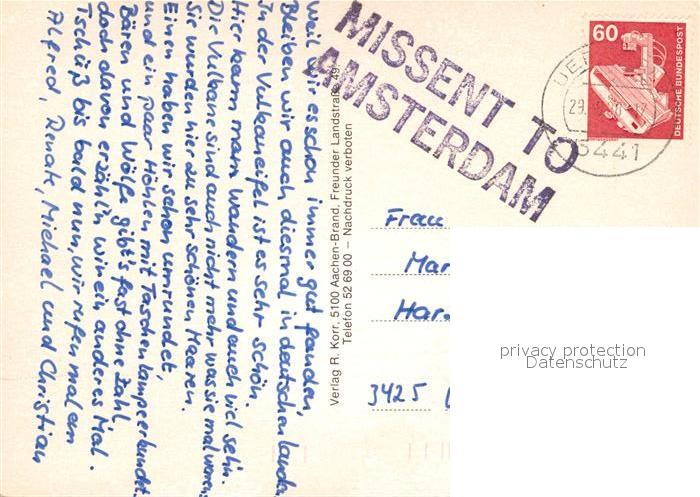 Weil wir es schon immer gut fanden,
Bleiben wir auch diesmal in deutschen Landen
In der Vulkaneifel ist es sehr schön.
Hier kann man wandern und auch viel seh'n.
Die Vulkane sind auch nicht mehr was sie mal waren
Sie wurden hier zu sehr schönen Maaren.
Einen haben wir schon umrundet,
und ein paar Höhlen mit Taschenlampe erkundet.
Bären und Wölfe gibt's fast ohne Zahl,
doch davon erzähl'n wir ein anderes Mal.
Tschüß bis bald nun, wir rufen mal an
Alfred, Renate, Michael und Christian
Verlag R. Korr, 5100 Aachen-Brand, Freunder Landstraße 49
Telefon 52 69 00 – Nachdruck verboten
MISSENT TO
AMSTERDAM
60
DEUTSCHE BUNDESPOST
5441
Frau
Mar
Har
3425
privacy protection
Datenschutz